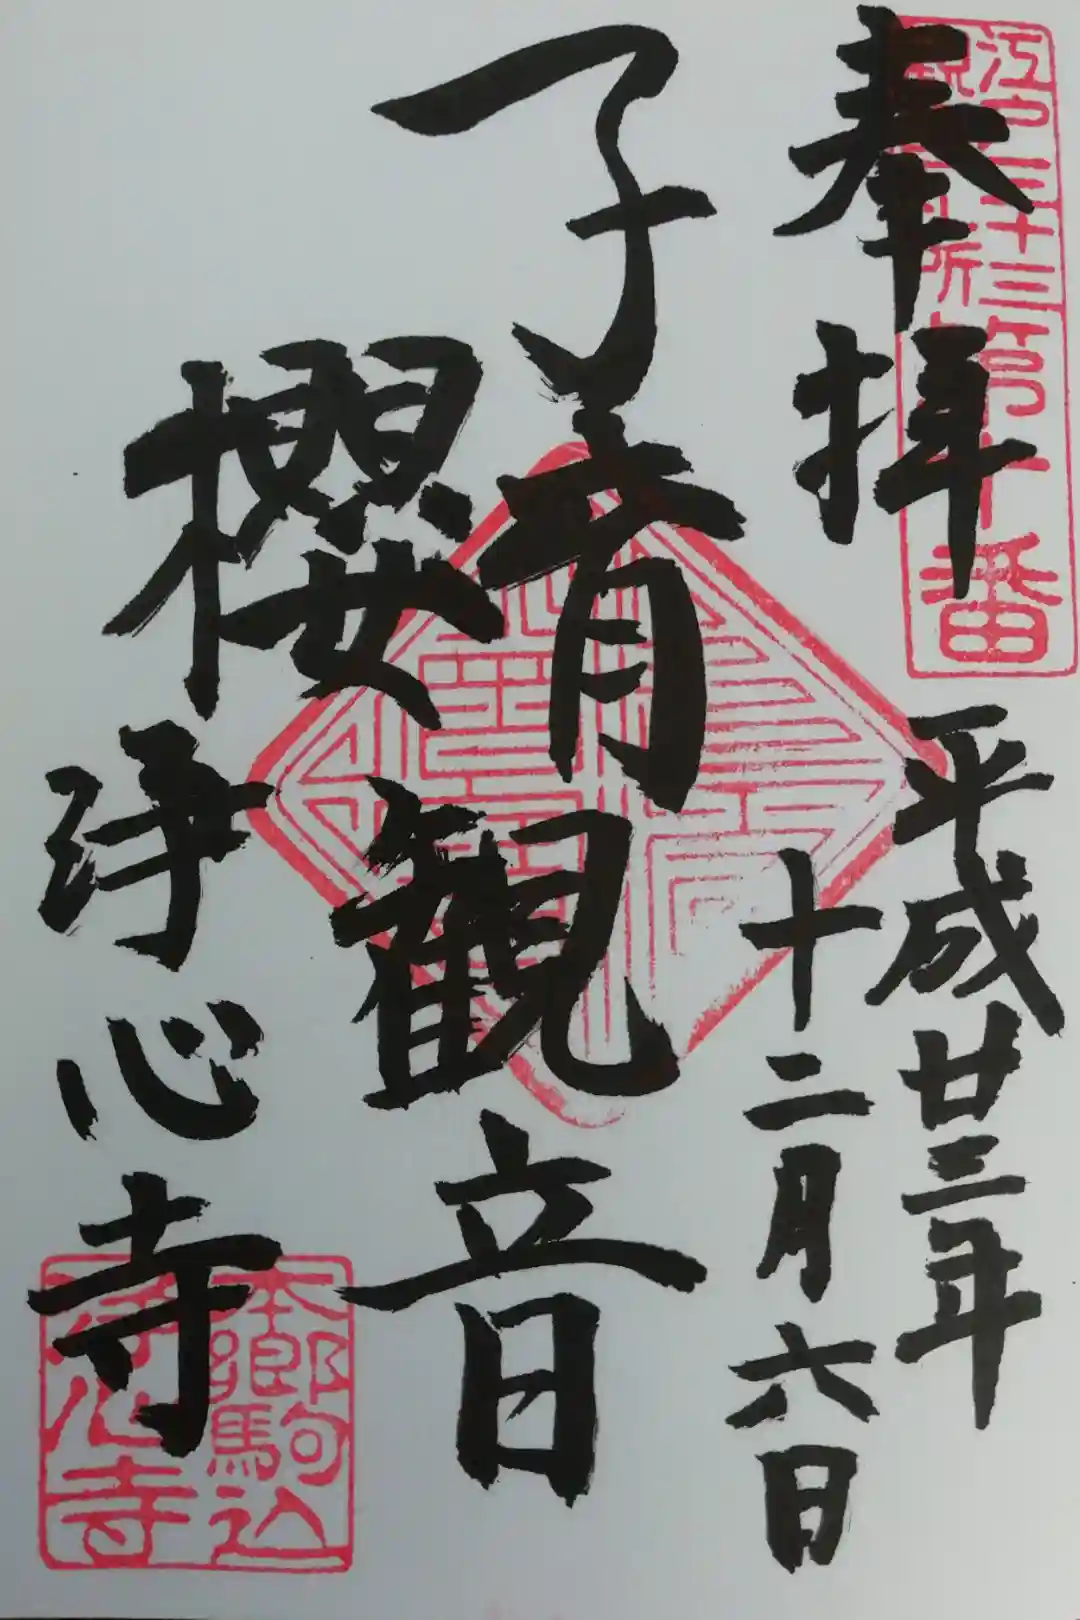 江戸三十三
観音札所
第十番
奉拝
平成廿三年
十二月六日
子育観音
櫻
浄心寺
本郷駒込
浄心寺